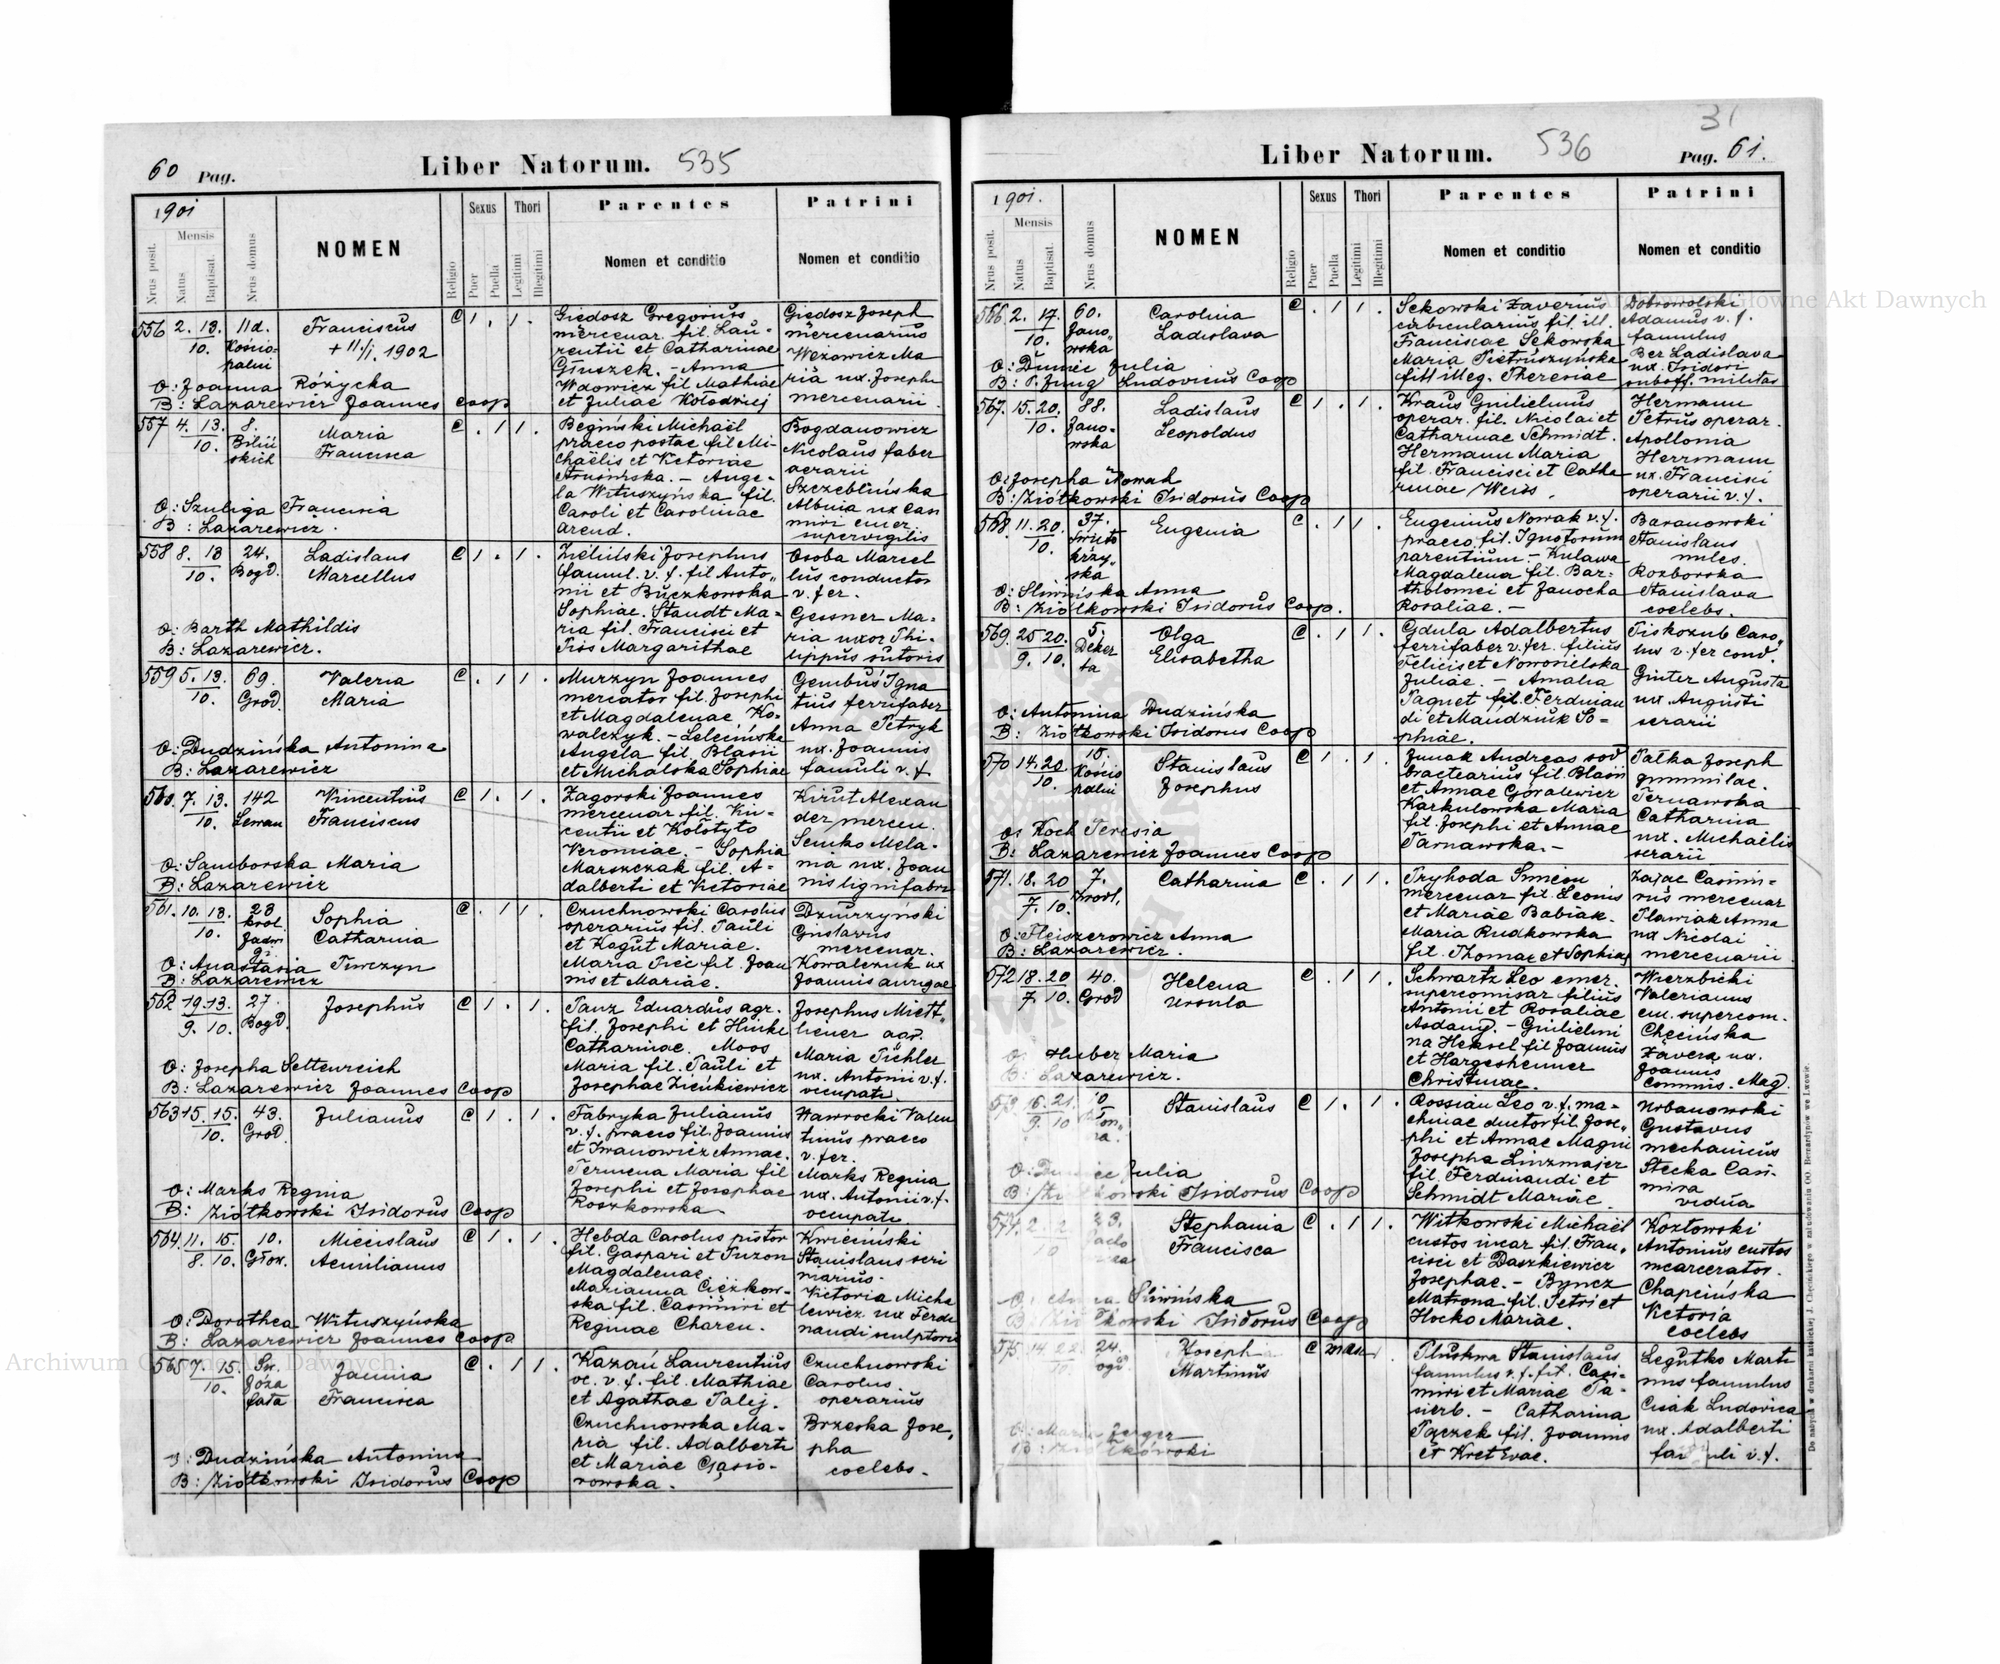 60 Pag. Liber Natorum. 535
1901
Nrus posit. Mensis Natus Baptisat. Nrus domus NOMEN Religio Sexus Puer Puella Thori Legitimi Illegitimi Parentes Nomen et conditio Patrini Nomen et conditio
556 2. 13. 10. 11d. Kościopalni
Franciscus
+ 11/I. 1902
O: Joanna Różycka
B: Lazarewicz Joannes Coop
Giedosz Gregorius
mercenar. fil. Lau-
rentii et Catharinae
Gruszek. - Anna
Wąowicz fil Mathiae
et Juliae Kołodziej
Giedosz Joseph
mercenarius
Wezowicz Ma
ria ux. Josephi
mercenarii.
557 4. 13. 10. 8. Biliń skich
Maria
Francisca
O: Szuliga Francisca
B: Lazarewicz.
Begiński Michaël
praeco postae fil Mi-
chaëlis et Victoriae
- Ange-
la Wituszyńska fil.
Caroli et Carolinae
arend.
Bogdanowicz
Nicolaus faber
aerarii
Szczeblińska
Albina ux Casi
miri emer.
supervigilis
558 8. 13 10. 24. Bogd.
Ladislaus
Marcellus
O: Barth Mathildis
B: Lazarewicz.
Zieliński Josephus
famul. v. f. fil Anto,,
nii et Buczkowska
Sophiae. Staudt Ma-
ria fil. Francisci et
Pios Margarithae
Osoba Marcel
lus conductor
v. fer.
Gessner Ma-
ria uxor Phi-
lippus sutoris
559 5. 13. 10. 69. Grod.
Valeria
Maria
O: Dudzińska Antonina
B: Lazarewicz
Murzyn Joannes
mercator fil. Josephi
et Magdalenae Ko-
walczyk. - Lelecińska
Angela fil. Blasii
et Michalska Sophiae
Gembus Igna
tius ferrifaber
Anna Petryk
ux. Joannis
famuli v. f.
560. 7. 13. 10. 142 Leman
Vincentius
Franciscus
O: Samborska Maria
B: Lazarewicz
Zagorski Joannes
mercenar. fil. Vin-
centii et Kołotyło
Veroniae. - Sophia
Marszczak fil. A-
dalberti et Victoriae
Kirut Alexan
der mercen.
Semko Mela-
nia ux. Joan
nis lignifabri
561. 10. 13. 10. 23 Krol. Jadwi gi.
Sophia
Catharina
O: Anastasia Turczyn
B: Lazarewicz
Czuchnowski Carolus
operarius fil. Pauli
et Kogut Mariae.
Maria Pric fil. Joan
nis et Mariae.
Dzurzyński
Gustavus
mercenar.
Kowalczuk ux
Joannis aurigae
562 19. 13. 9. 10. 27. Bogd.
Josephus
O: Josepha Settenreich
B: Lazarewicz Joannes Coop
Panz Eduardus agr.
fil. Josephi et Hinke
Catharinae. Moos
Maria fil. Pauli et
Josephae Zieńkiewicz
Josephus Miett,,
liener agr.
Maria Pichler
ux. Antonii v. f.
occupati.
563 15. 15. 10. 43. Grod.
Julianus
O: Marks Regina
B: Ziółkowski Isidorus Coop
Fabryka Julianus
v. f. praeco fil. Joannis
et Iwanowicz Annae.
Termena Maria fil
Josephi et Josephae
Roszkowska
Nawrocki Valen
tinus praeco
v. fer.
Marks Regina
ux. Antonii v. f.
occupati.
564. 11. 15. 8. 10. 10. Głow.
Miecislaus
Aemilianus
O: Dorothea Wituszyńska
B: Lazarewicz Joannes Coop
Hebda Carolus pistor
fil. Gaspari et Puzon
Magdalenae
Marianna Ciężkow-
ska fil. Casimiri et
Reginae Charcu.
Kwieciński
Stanislaus scri
narius.
Victoria Micha
lewicz ux Ferdi
nandi sculptoris
565 7. 15. 10. Św. Józa fata
Janina
Francisca
O: Dudzińska Antonina
B: Ziółkowski Isidorus Coop
Kazań Laurentius
oc. v. f. fil. Mathiae
et Agathae Palej.
Czuchnowska Ma-
ria fil. Adalberti
et Mariae Gąsio-
rowska.
Czuchnowski
Carolus
operarius
Brzeska Jose,
pha
coelebs.
31
Liber Natorum. 536 Pag. 61.
1901.
Nrus posit. Mensis Natus Baptisat. Nrus domus NOMEN Religio Sexus Puer Puella Thori Legitimi Illegitimi Parentes Nomen et conditio Patrini Nomen et conditio
566 2. 17. 10. 60. Jano,, wska
Carolina
Ladislava
O: Duniec Julia
B: P. Jung Ludovicus Coop
Sękowski Xaverius
cubicularius fil. ill.
Franciscae Sękowska
Maria Pietruszyńska
fil illeg. Theresiae
Dobrowolski
Adamus v. f.
famulus
Ber Ladislava
ux. Isidori
suboff. militar
567. 15. 20. 10. 88. Jano- wska
Ladislaus
Leopoldus
O: Josepha Nowak
B: Ziółkowski Isidorus Coop
Kraus Guilielmus
operar. fil. Nicolai et
Catharinae Schmidt.
Hermann Maria
fil. Francisci et Catha
rinae Weiss.
Hermann
Petrus operar.
Apollonia
Herrmann
ux. Francisci
operarii v. f.
568. 11. 20. 10. 37. Święto krzy,, ska
Eugenia
O: Śliwińska Anna
B: Ziółkowski Isidorus Coop.
Eugenius Nowak v. f.
praeco fil. Ignotorum
parentium - Kulawa
Magdalena fil. Bar-
tholomei et Janocha
Rosaliae. -
Baranowski
Stanislaus
miles
Rozborska
Stanislava
coelebs.
569. 25 20. 9. 10. 5. Dekerta
Olga
Elisabetha
O: Antonina Dudzińska
B: Ziółkowski Isidorus Coop
Gdula Adalbertus
ferrifaber v. fer. filius
Felicis et Nowosielska
Juliae. - Amalia
Paquet fil. Ferdinan
di et Maudziuk So-
phiae.
Piskozub Caro,,
lus v. fer cond.
Ginter Augusta
ux Augusti
serarii
570 14. 20 10. 15. Kościo palni
Stanislaus
Josephus
O: Koch Teresia
B: Lazarewicz Joannes Coop
Junak Andreas sod
bractearius fil. Blasii
et Annae Góralewicz
Karkulowska Maria
fil. Josephi et Annae
Tarnawska. -
Pałka Joseph
Ternawska
Catharina
ux. Michaëlis
serarii
571. 18. 20 7. 10. 7. Źrodl.
Catharina
O: Fleiszerowicz Anna
B: Lazarewicz.
Pryhoda Simeon
mercenar fil. Leonis
et Mariae Babiak.
Maria Rudkowska
fil. Thomae et Sophiae
Zając Casimi-
rus mercenar
Pławiak Anna
ux Nicolai
mercenarii
572 18. 20 7. 10. 40. Grod
Helena
Ursula
O: Huber Maria
B: Lazarewicz.
Schwartz Leo emer.
supercomisar filius
Antonii et Rosaliae
- Guilielmi
na Hensel fil Joannis
et Hargesheimer
Christinae.
Wierzbicki
Valerianus
em. supercom.
Chęcińska
Xavera ux.
Joannis
commis. Mag.
16. 21. 9. 10
Stanislaus
O: Duniec Julia
B: Ziółkowski Isidorus Coop
Rossian Leo v. f. ma-
chinae ductor fil. Jose,,
phi et Annae Magni
Josepha Linzmajer
fil. Ferdinandi et
Schmidt Mariae
Urbanowski
Gustavus
mechanicus
Stecka Casi-
mira
vidua
574. 2. 2 10 23.
Stephania
Francisca
O: Anna Śliwińska
B: Ziółkowski Isidorus Coop
Witkowski Michaël
custos incar fil. Fran,,
cisci et Daszkiewicz
Josephae. - Byncz
Matrona fil. Petri et
Hocko Mariae.
Kozłowski
Antonius custos
incarcerator.
Chapcińska
Victoria
coelebs
575. 14 22 24.
Joseph
Martinus
O: Maria Zerger
B: Ziółkowski
Pluskwa Stanislaus
famulus v. f. fil. Casi-
miri et Mariae Pa-
sierb. - Catharina
Pączek fil. Joannis
et Kret Evae.
Legutko Marti
nus famulus
Cisak Ludovica
ux. Adalberti
famuli v. f.
Do nabycia w drukarni katolickiej J. Chęcińskiego w zabudowaniu OO. Bernardynów we Lwowie.
Archiwum Główne Akt Dawnych
Archiwum Główne Akt Dawnych